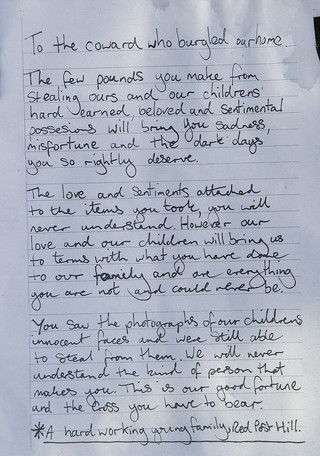 To the coward who burgled our home.
The few pounds you make from
stealing ours and our childrens'
hard earned, beloved and sentimental
possesions will bring you sadness,
misfortune and the dark days
you so rightly deserve.
The love and sentiments attached
to the items you took, you will
never understand. However our
love and our children will bring us
to terms with what you have done
to our family and are everything
you are not and could never be.
You saw the photographs of our childrens
innocent faces and were still able
to steal from them. We will never
understand the kind of person that
makes you. This is our good fortune
and the cross you have to bear.
*A hard working young family, Red Post Hill.